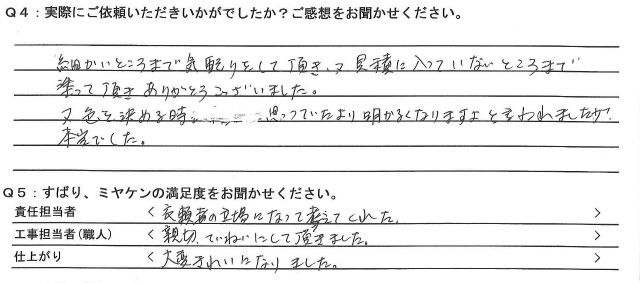 Q4：実際にご依頼いただきいかがでしたか？ご感想をお聞かせください。
細かいところまで気配りをして頂き、又見積に入っていないところまで
塗って頂きありがとうございました。
又色を決める時 思っていたより明かるくなりますよと言われましたが、
本当でした。
Q5：ずばり、ミヤケンの満足度をお聞かせください。
責任担当者 〈 依頼者の立場になって考えてくれた。 〉
工事担当者(職人) 〈 親切、ていねいにして頂きました。 〉
仕上がり 〈 大変きれいになりました。 〉